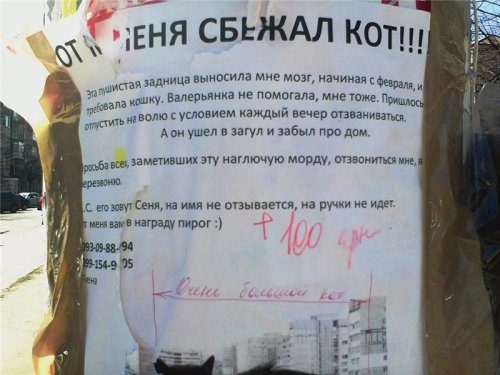 ОТ МЕНЯ СБЕЖАЛ КОТ!!!!
Эта пушистая задница выносила мне мозг, начиная с февраля, и
требовала кошку. Валерьянка не помогала, мне тоже. Пришлось
отпустить на волю с условием каждый вечер отзваниваться.
А он ушел в загул и забыл про дом.
Просьба всем, заметивших эту наглючую морду, отзвониться мне, я
перезвоню.
.С. его зовут Сеня, на имя не отзывается, на ручки не идет.
от меня вам в награду пирог :)
+ 100 грн
093-09-88- 94
099-154-9 05
Очень большой кот